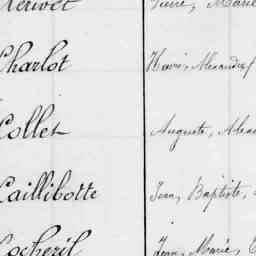 Charlot Henri, Alexandre
Collet Auguste, Alexa
Caillibotte Jean, Baptiste,
Cocheril Jean, Marie,